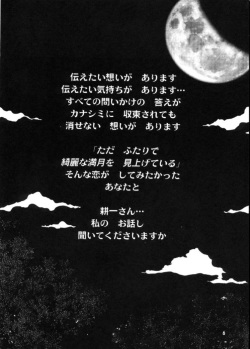 伝えたい想いが　あります
伝えたい気持ちが　あります…
すべての問いかけの　答えが
カナシミに　収束されても
消せない　想いが　あります
「ただ　ふたりで
綺麗な満月を　見上げている」
そんな恋が　してみたかった
あなたと
耕一さん…
私の　お話し
聞いてくださいますか